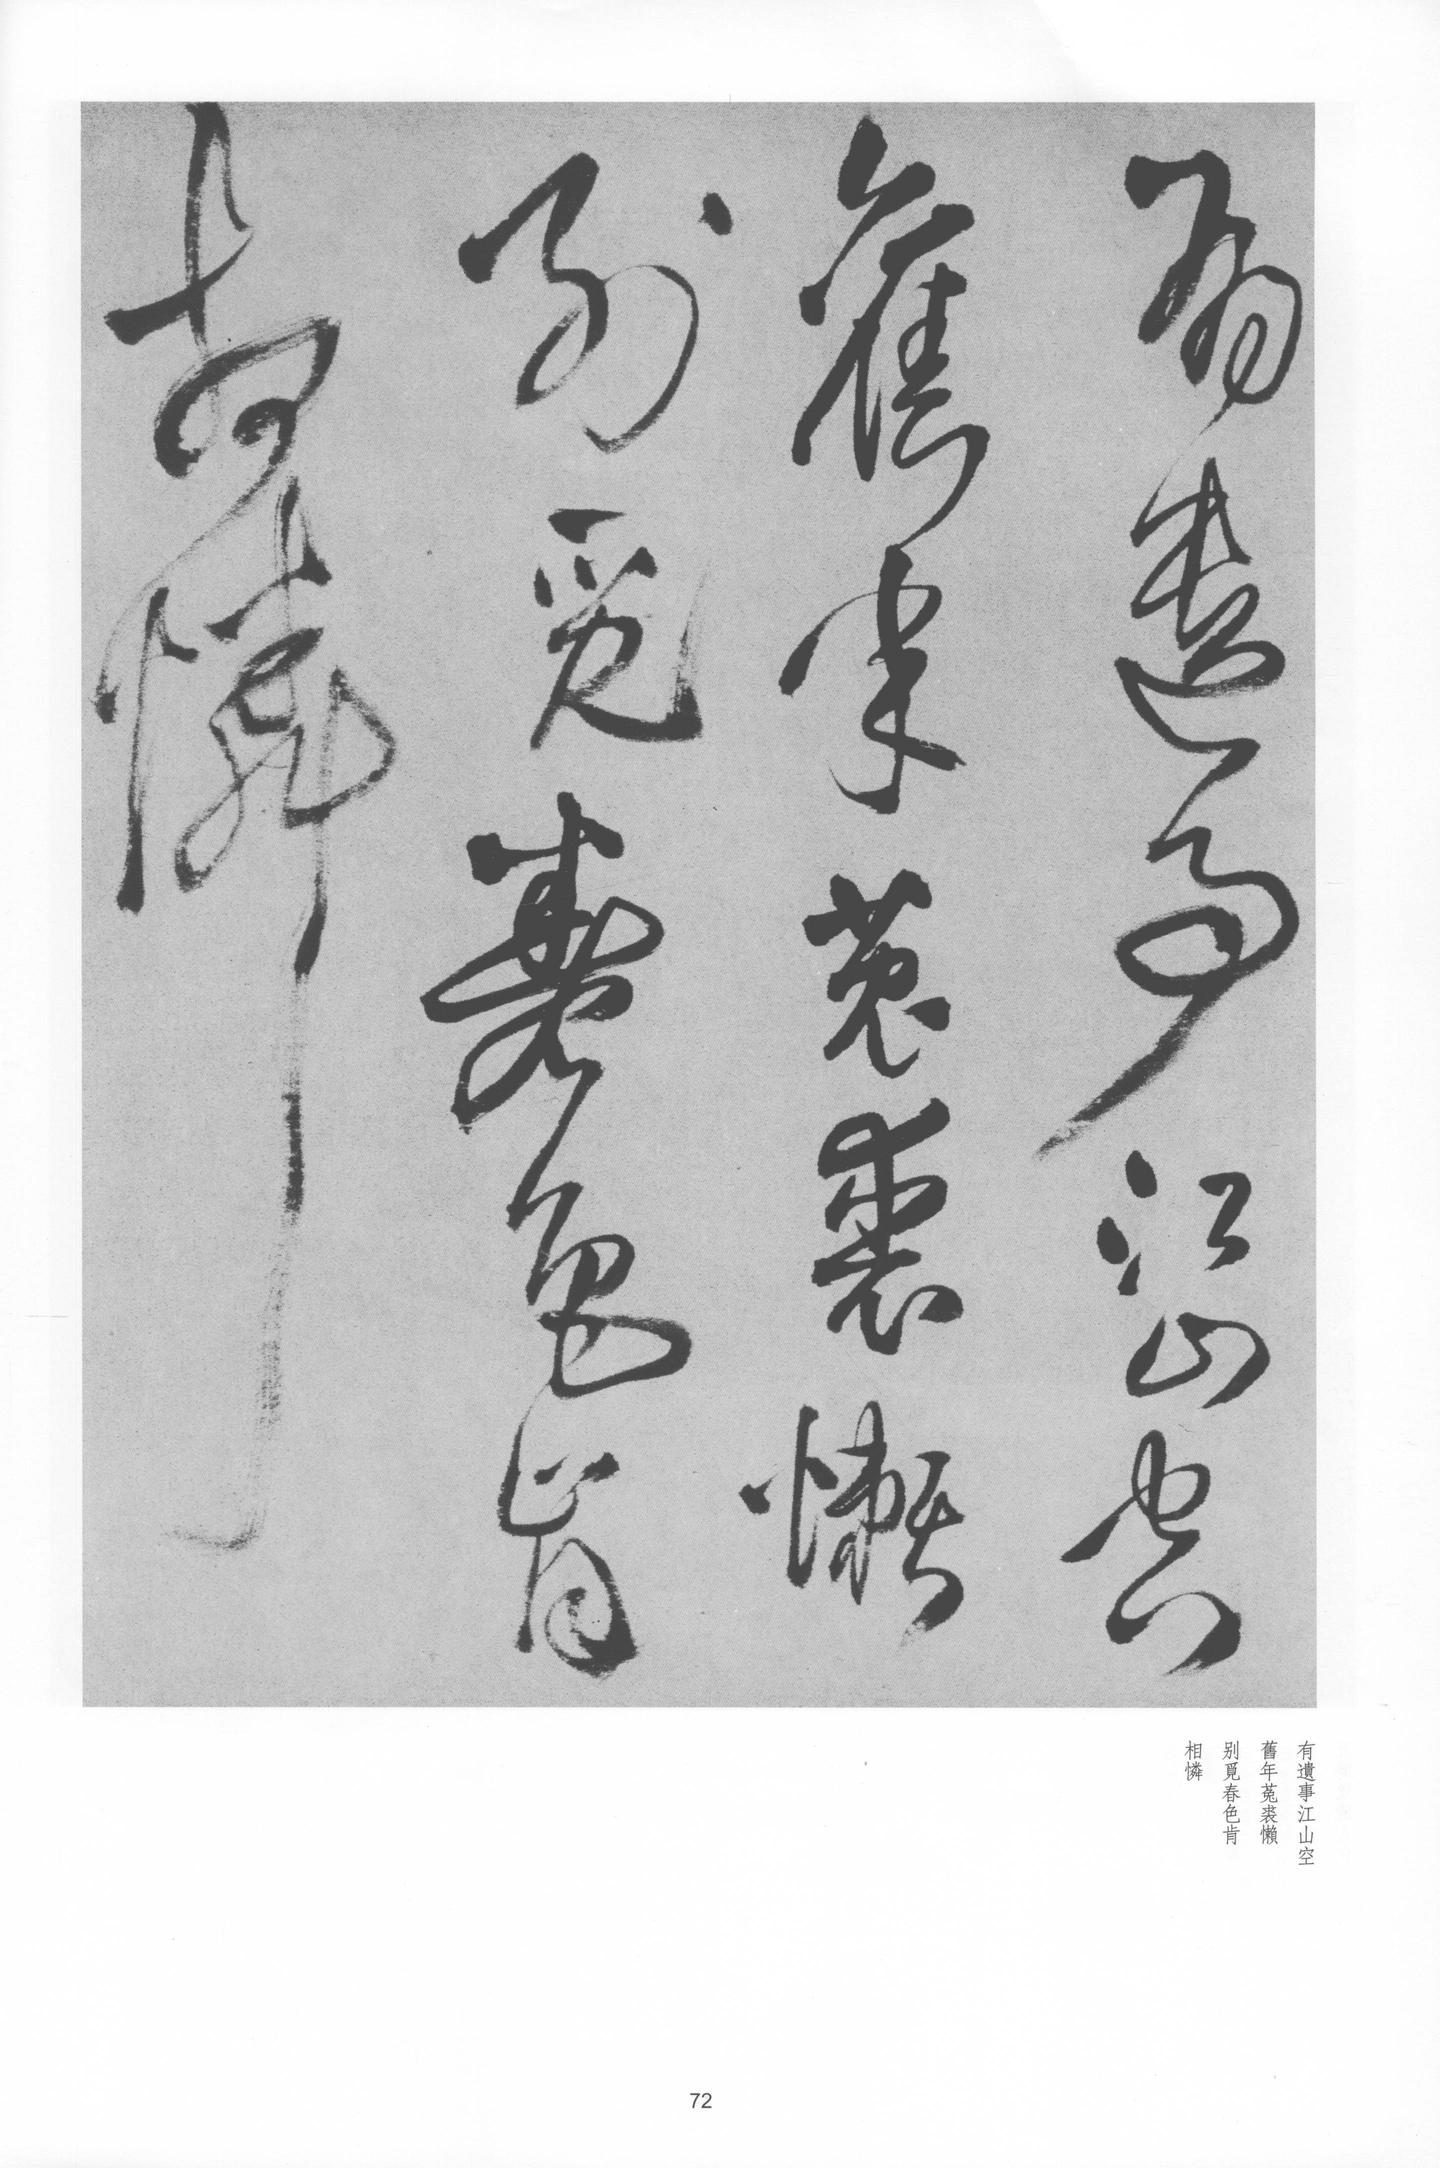 有遺事江山空
舊年菟裘懶
别覓春色肯
相憐
有遺事江山空
舊年菟裘懶
别覓春色肯
相憐
72